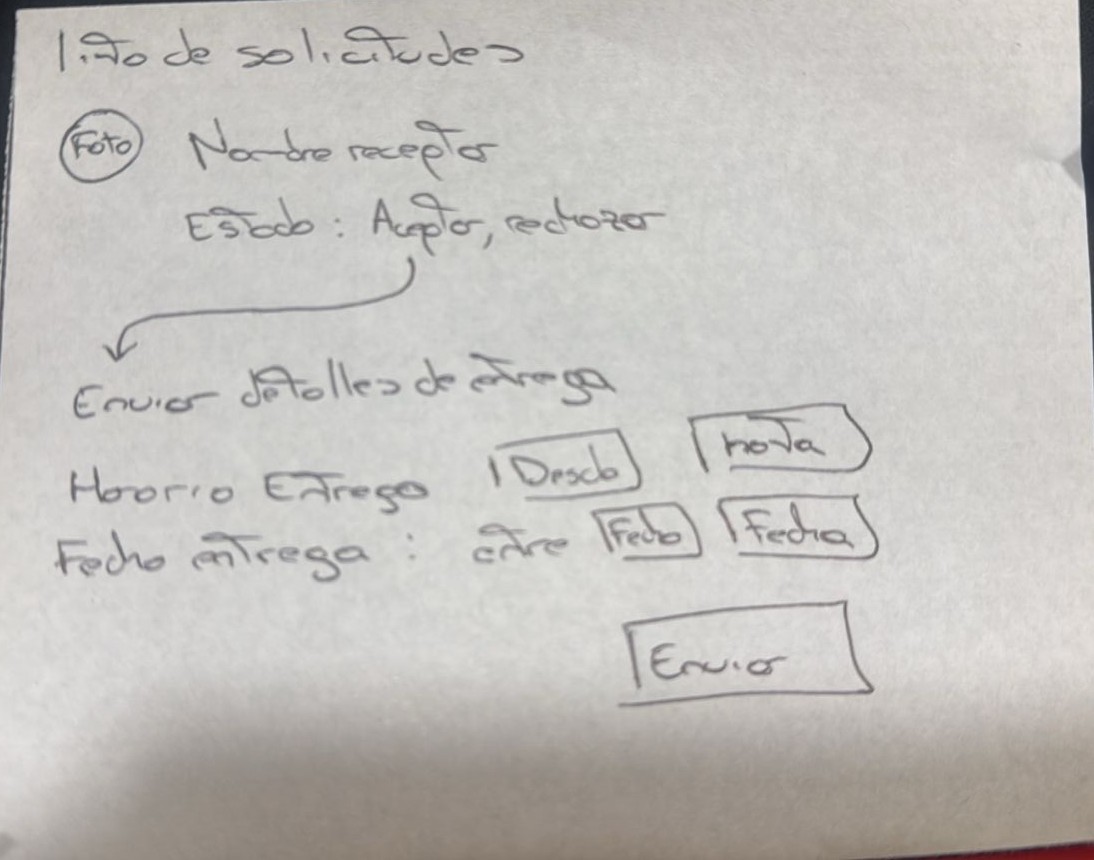 lista de solicitudes
Foto Nombre receptor
Estado: Aceptar, rechazar
Enviar detalles de entrega
Horario Entrega Desde hasta
Fecha entrega: entre Fecha Fecha
Enviar